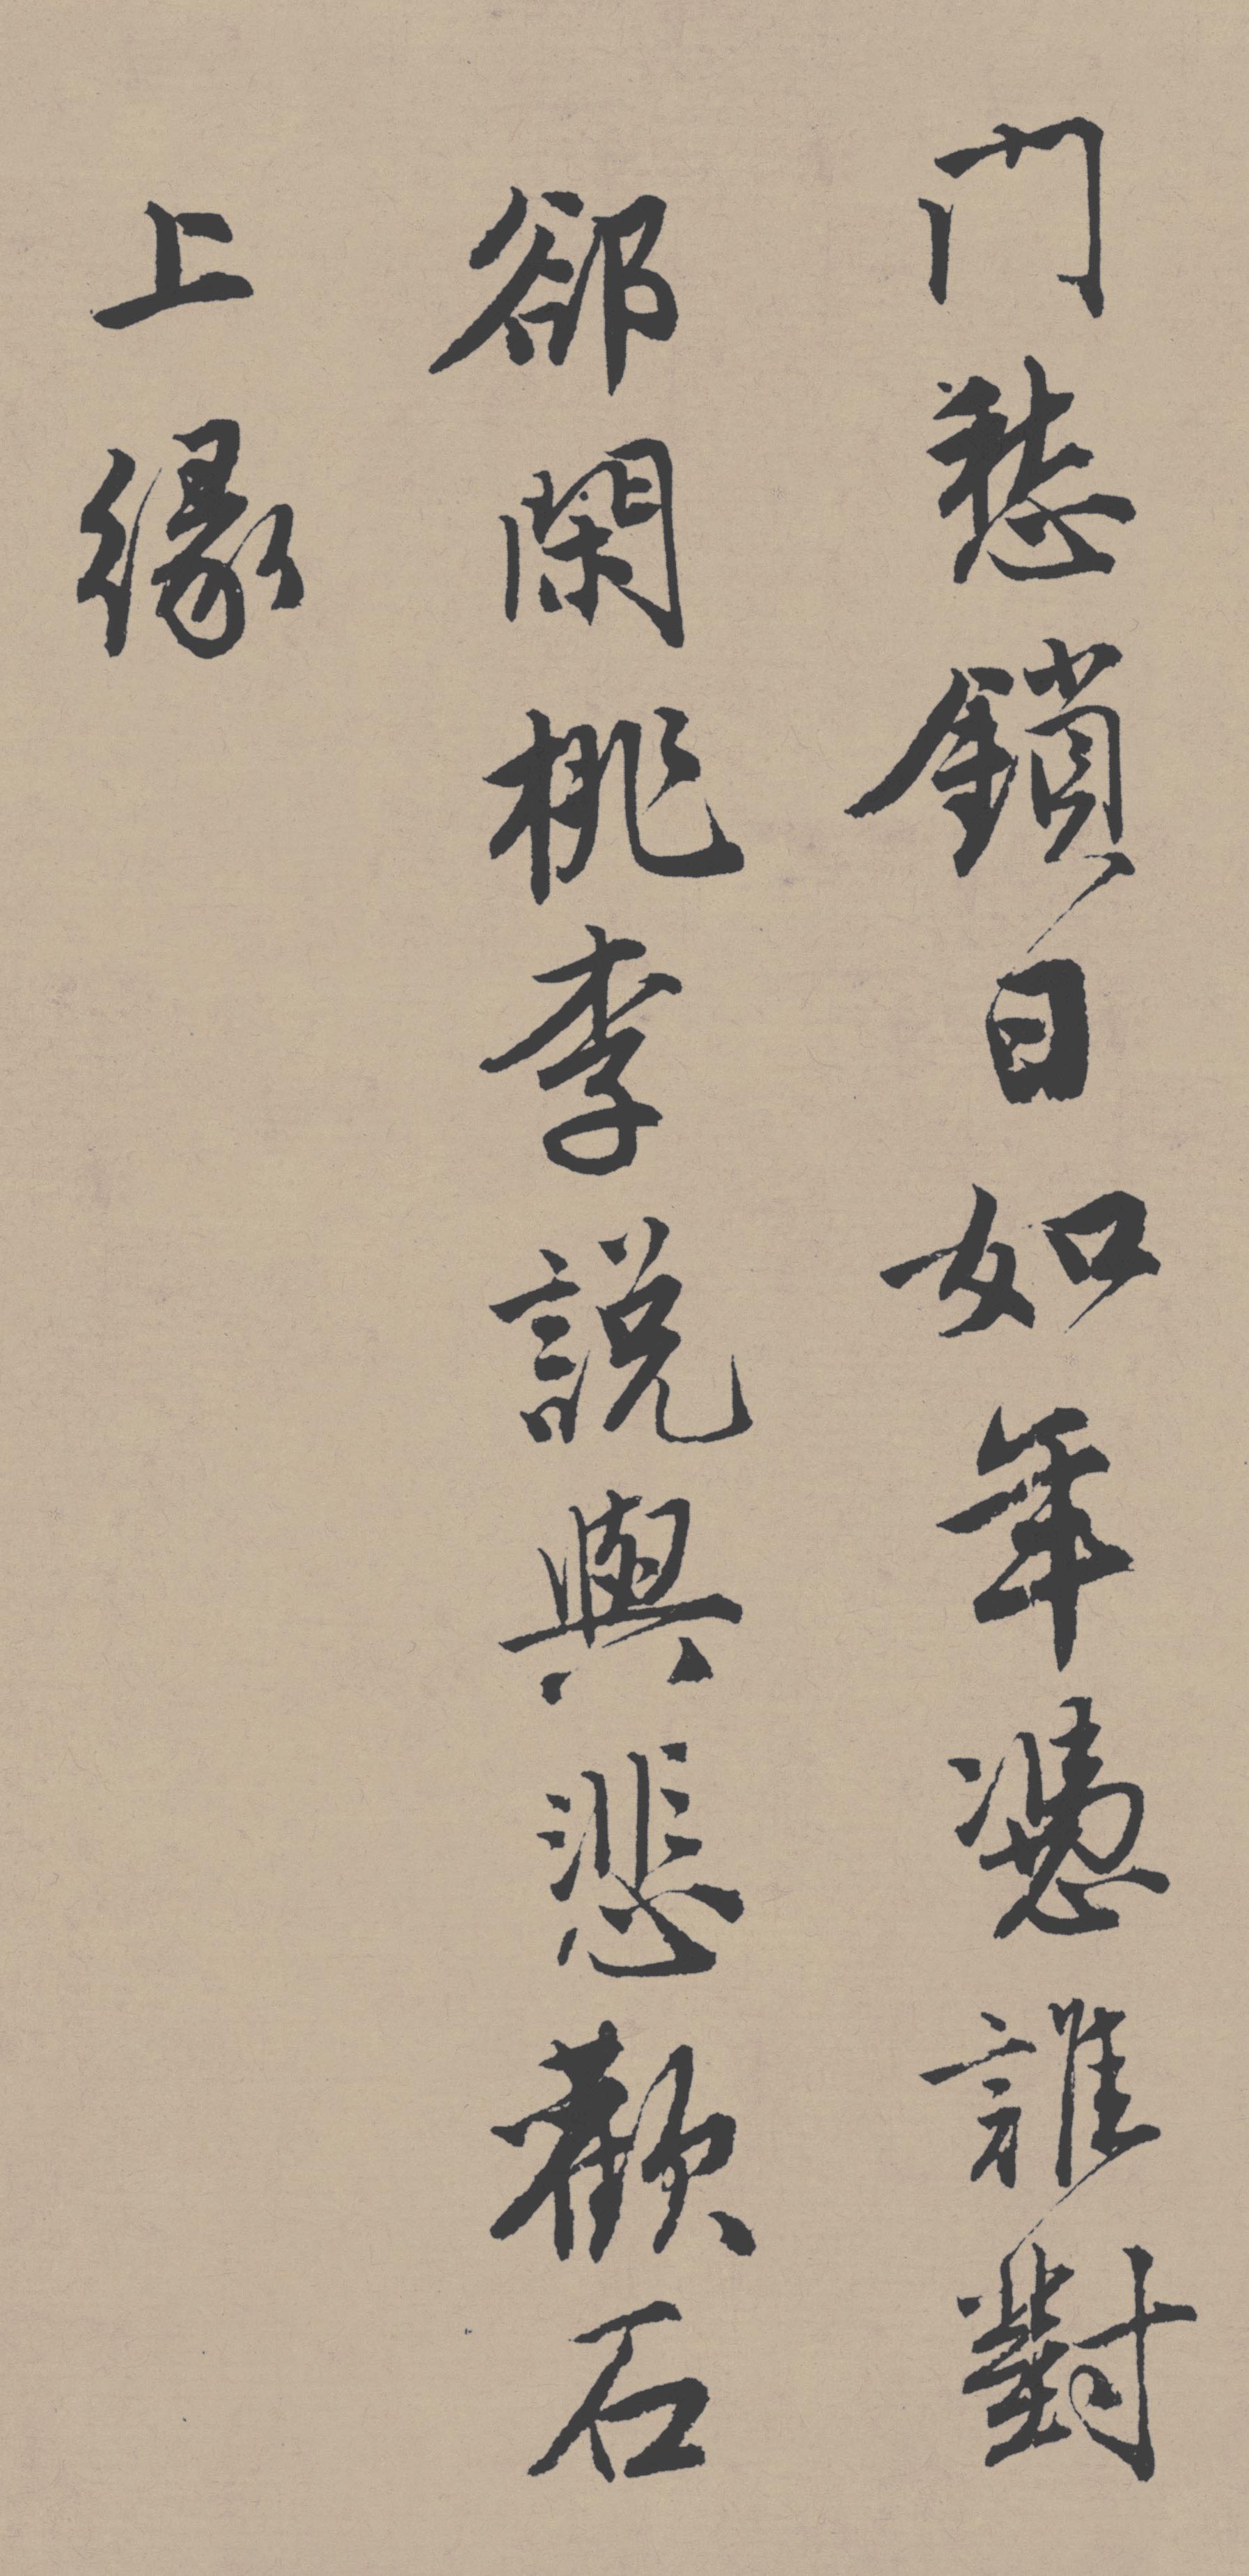 門愁鎖日如年憑誰對
卻閑桃李説與悲歡石
上緣